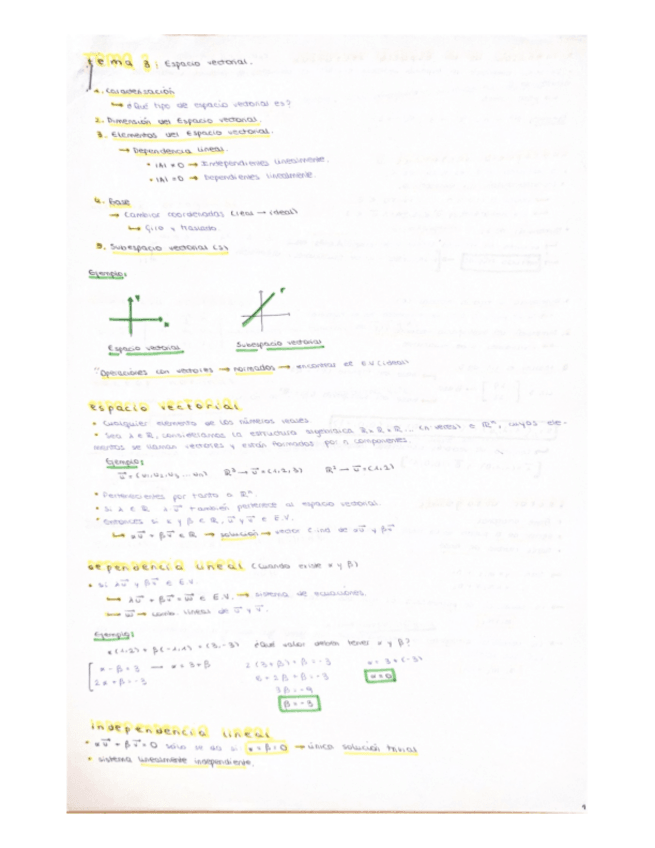 Tema 3: Espacio vectorial.
1. Caracterización
↳ ¿Qué tipo de espacio vectorial es?
2. Dimensión del Espacio vectorial.
3. Elementos del Espacio vectorial.
→ Dependencia lineal.
• |A| ≠ 0 → Independientes linealmente.
• |A| = 0 → Dependientes linealmente.
4. Base
→ Cambiar coordenadas (real → ideal)
↳ Giro y traslado.
5. Subespacio vectorial (s)
Ejemplo:
Y
x
r
Espacio vectorial
Subespacio vectorial
Operaciones con vectores → normados → encontrar el E.V. (ideal)
Espacio vectorial
• Cualquier elemento de los números reales
• Sea λ ∈ R, consideramos la estructura algebraica R x R x R ... (n veces) o Rⁿ, cuyos ele-
mentos se llaman vectores y están formados por n componentes.
Ejemplo:
u = (u₁, u₂, u₃, ... uₙ) R³ → v = (1,2,3) R² → v = (1,2)
• Pertenecientes por tanto a Rⁿ.
• Si λ ∈ R λ u también pertenece al espacio vectorial.
• Entonces si α y β ∈ R, u y v ∈ E.V.
↳ αu + βv ∈ R → solución → vector c. lineal de αu y βv
Dependencia lineal (cuando existe α y β)
• Si λu y βv ∈ E.V.
↳ λu + βv = w ∈ E.V. → sistema de ecuaciones.
↳ w → comb. lineal de u y v.
Ejemplo:
α(1,2) + β(-1,1) = (3,-3) ¿Qué valor deben tener α y β?
α - β = 3 → α = 3 + β 2(3+β) + β = -3 α = 3 + (-3)
2α + β = -3 6 + 2β + β = -3 α = 0
3β = -9
β = -3
Independencia lineal
• αu + βv = 0 solo se da si α = β = 0 → única solución trivial
• sistema linealmente independiente.
1